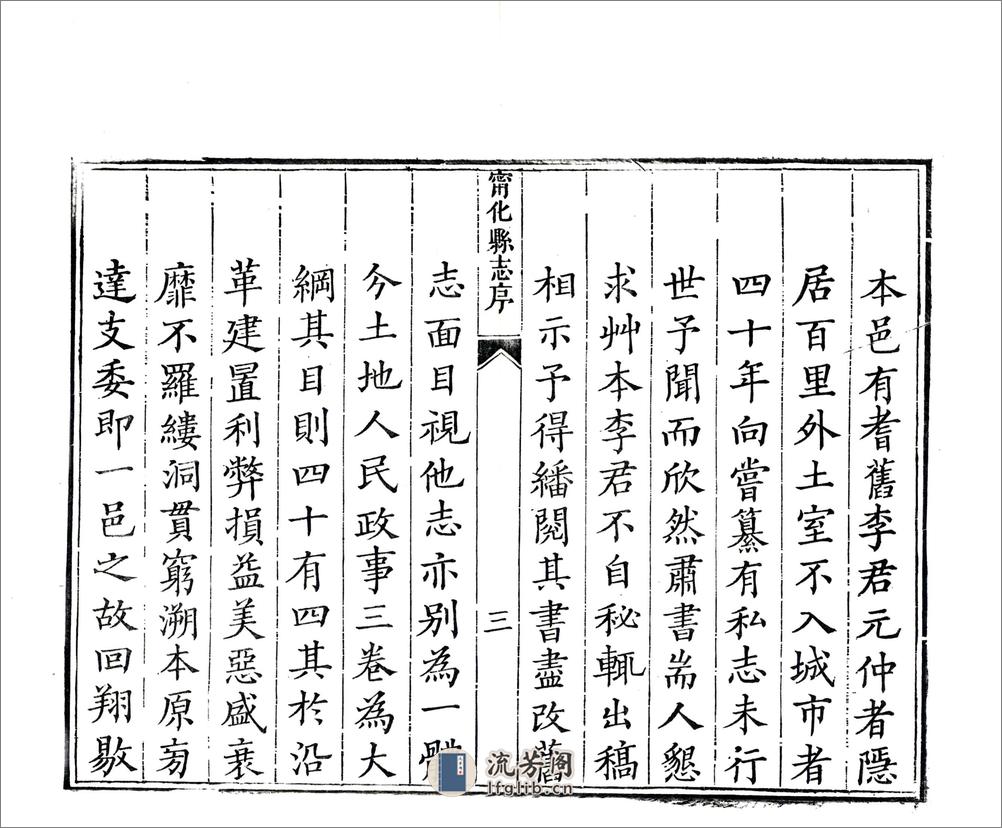 本邑有耆舊李君元仲者隱
居百里外土室不入城市者
四十年向嘗纂有私志未行
世予聞而欣然肅書耑人懇
求艸本李君不自秘輒出稿
相示予得繙閱其書盡改舊
甯化縣志序
三
志面目視他志亦別為一體
今土地人民政事三卷為大
綱其目則四十有四其於沿
革建置利弊損益美惡盛衰
靡不羅縷洞貫窮溯本原旁
達支委即一邑之故回翔敭
流芳阁
lfglib.cn